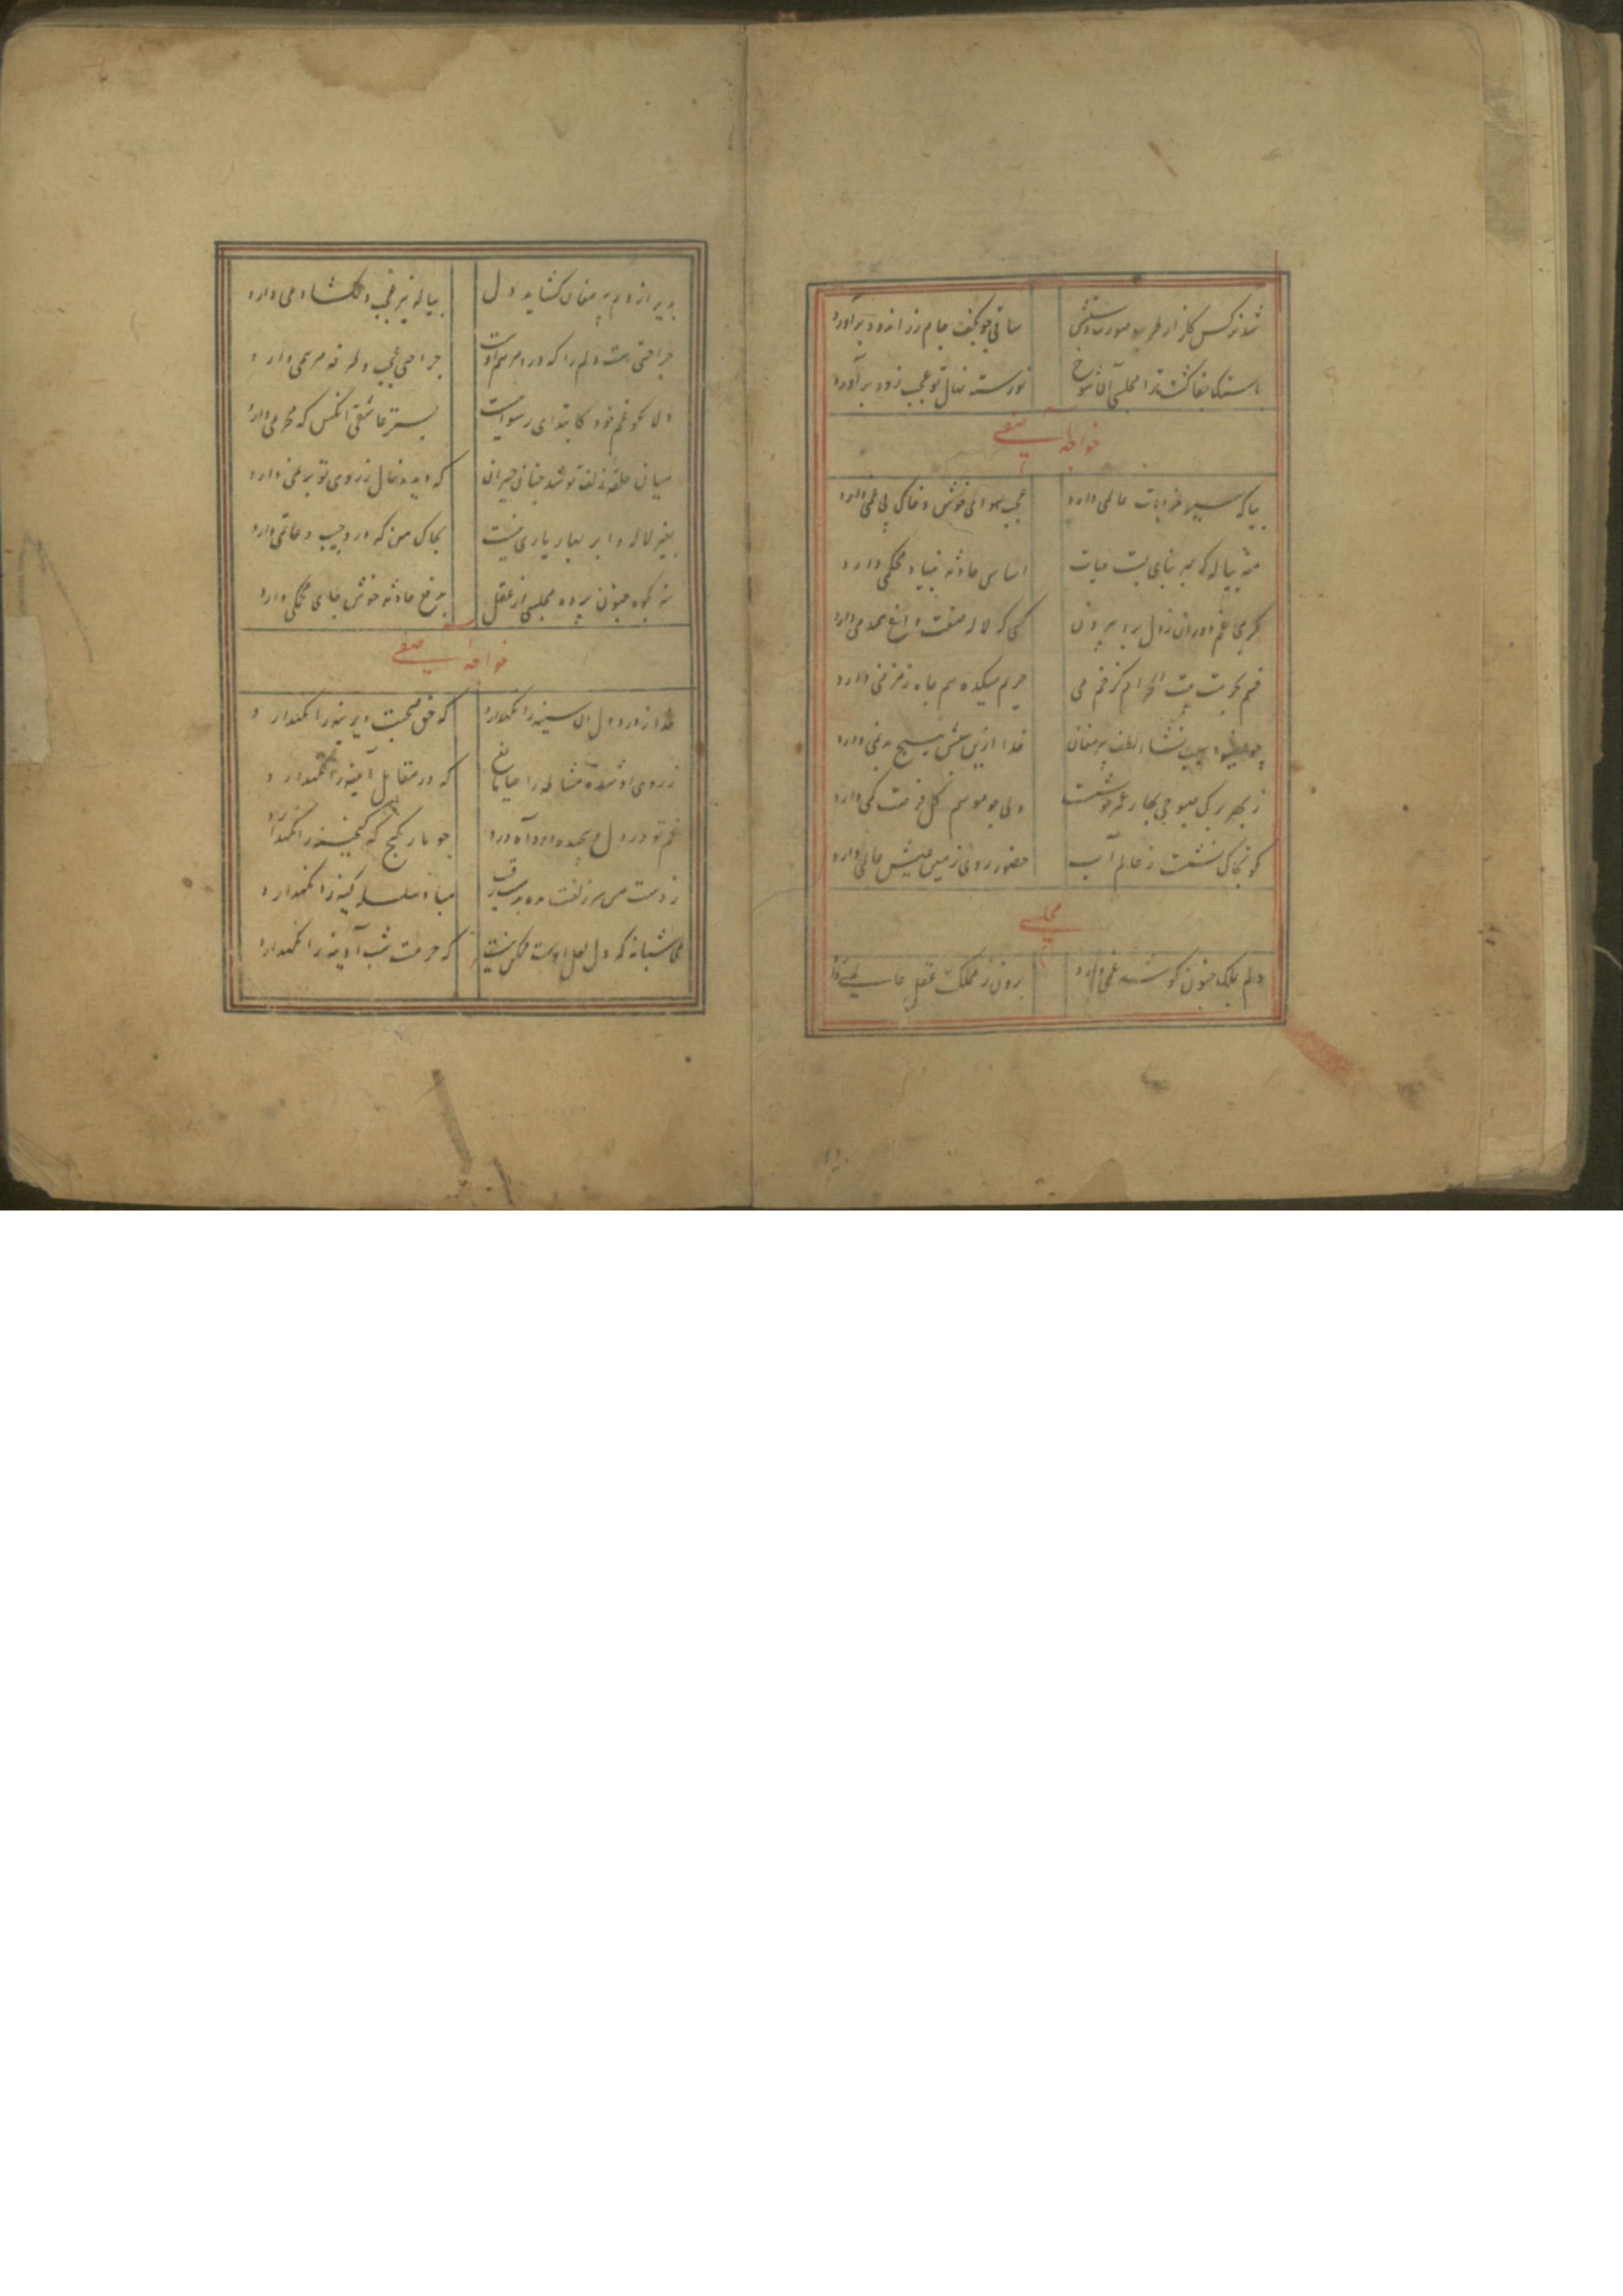 شد نرکس کلزار طرب
ساقی چو بکف جام زر اندود برآورد
نورسته نهال تو عجب زود برآورد
خواجه آصفی
بیا که سیر خرابات عالمی دارد
عجب هوای خوش و خاک بی غمی دارد
منه پیاله که بهر بنای بست حیات
اساس حادثه بنیاد محکمی دارد
که می غم دوران ز دل برد بیرون
کسی که لاله صفت داغ همدمی دارد
قسم بحرمت بیت الحرام کز خم می
حریم میکده هم چاه زمزمی دارد
پیر مغان
خدا ازین
ز بهر برک صبوحی بهار عمر خوشست
ولی چو موسم کل فرصت کمی دارد
که بخاک نشست ز عالم آب
حضور روی زمین عیش عالمی دارد
مجلسی
دلم بملک جنون کوشه غمی دارد
برون ز مملکت عقل
بدیر از دم پیر مغان کشاید دل
پیاله نیز عجب دلکشا دمی دارد
جراحتی است دلم را که درد مرهم اوست
جراحتی عجب و طرفه مرهمی دارد
دلا مکو غم خود کابتدای رسواییست
عاشقی آنکس که محرمی دارد
میان حلقه زلفت تو شد چنان حیران
که دیده خال ز روی تو برنمی دارد
بغیر لاله و ابر بهار یاری نیست
بخاک من که درو جیب و ماتمی دارد
بکوه جنون برده مجلسی از عقل
بدفع حادثه خوش جای محکمی دارد
خواجه آصفی
خدا ز درد دل آن سینه را نکهدارد
که حق صحبت دیرینه را نکهدارد
ز روی او شده مشاطه را حیا مانع
که در مقابل آیینه را نکهدارد
غم تو در دل
چو مار کنج که کنجینه را نکهدارد
ز دست من سر زلفت مده بدست رقیب
مباد سلسله کینه را نکهدارد
می شبانه که دل لعل اوست ممکن نیست
که حرمت شب آدینه را نکهدارد